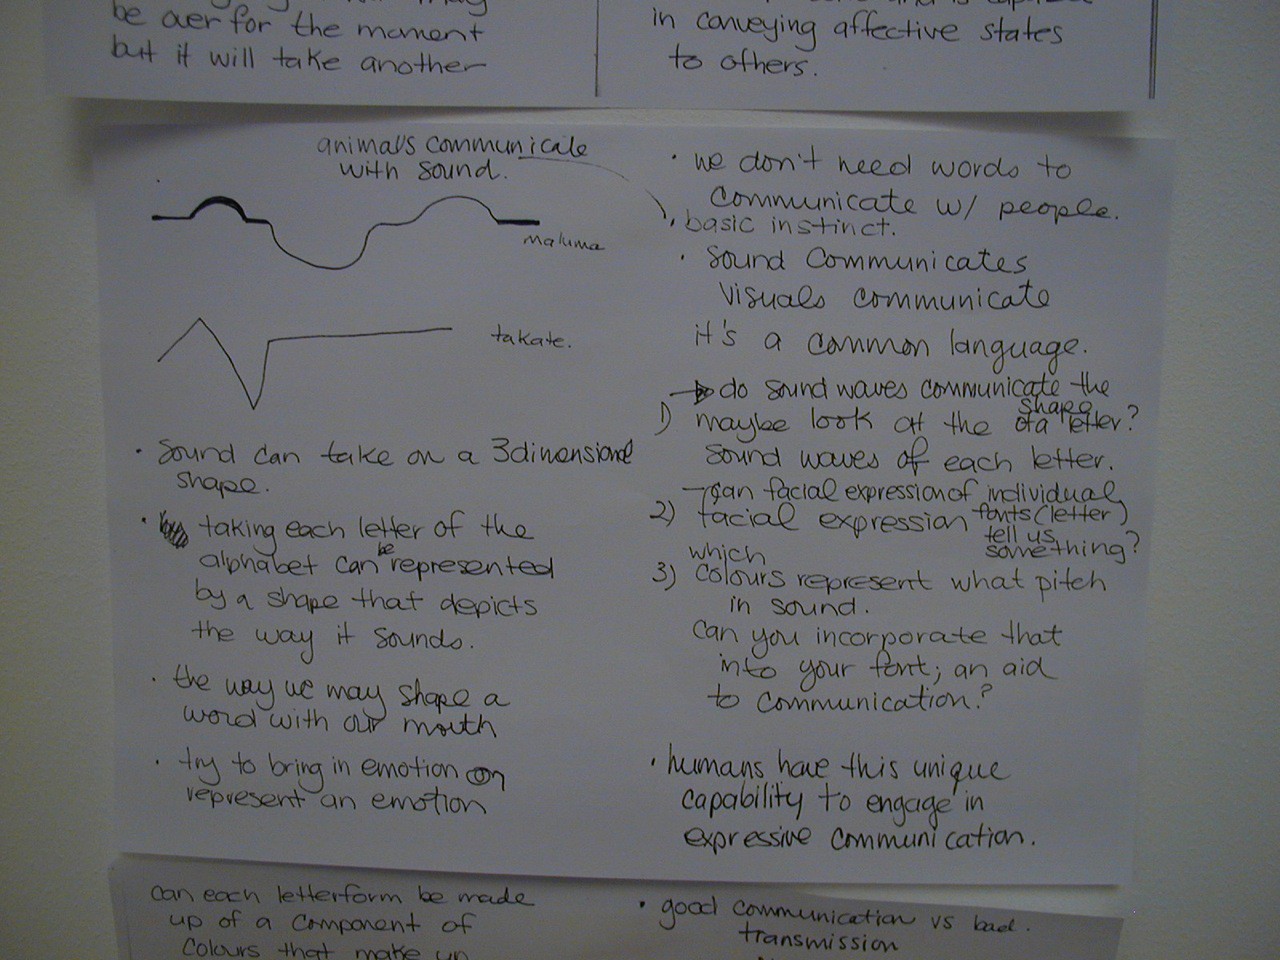 be over for the moment
but it will take another
in conveying affective states
to others.
animals communicate
with sound.
maluma
takate.
• sound can take on a 3dimensional
shape.
• taking each letter of the
alphabet can be represented
by a shape that depicts
the way it sounds.
• the way we may shape a
word with our mouth
• try to bring in emotion or
represent an emotion
• we don't need words to
communicate w/ people.
• basic instinct.
• sound communicates
visuals communicate
it's a common language.
→ do sound waves communicate the
shape
1) maybe look at the of a letter?
sound waves of each letter.
- can facial expression of individual
2) facial expression fonts (letter)
tell us
which something?
3) colours represent what pitch
in sound.
can you incorporate that
into your font; an aid
to communication?
• humans have this unique
capability to engage in
expressive communication.
can each letterform be made
up of a component of
colours that make up
• good communication vs bad.
transmission